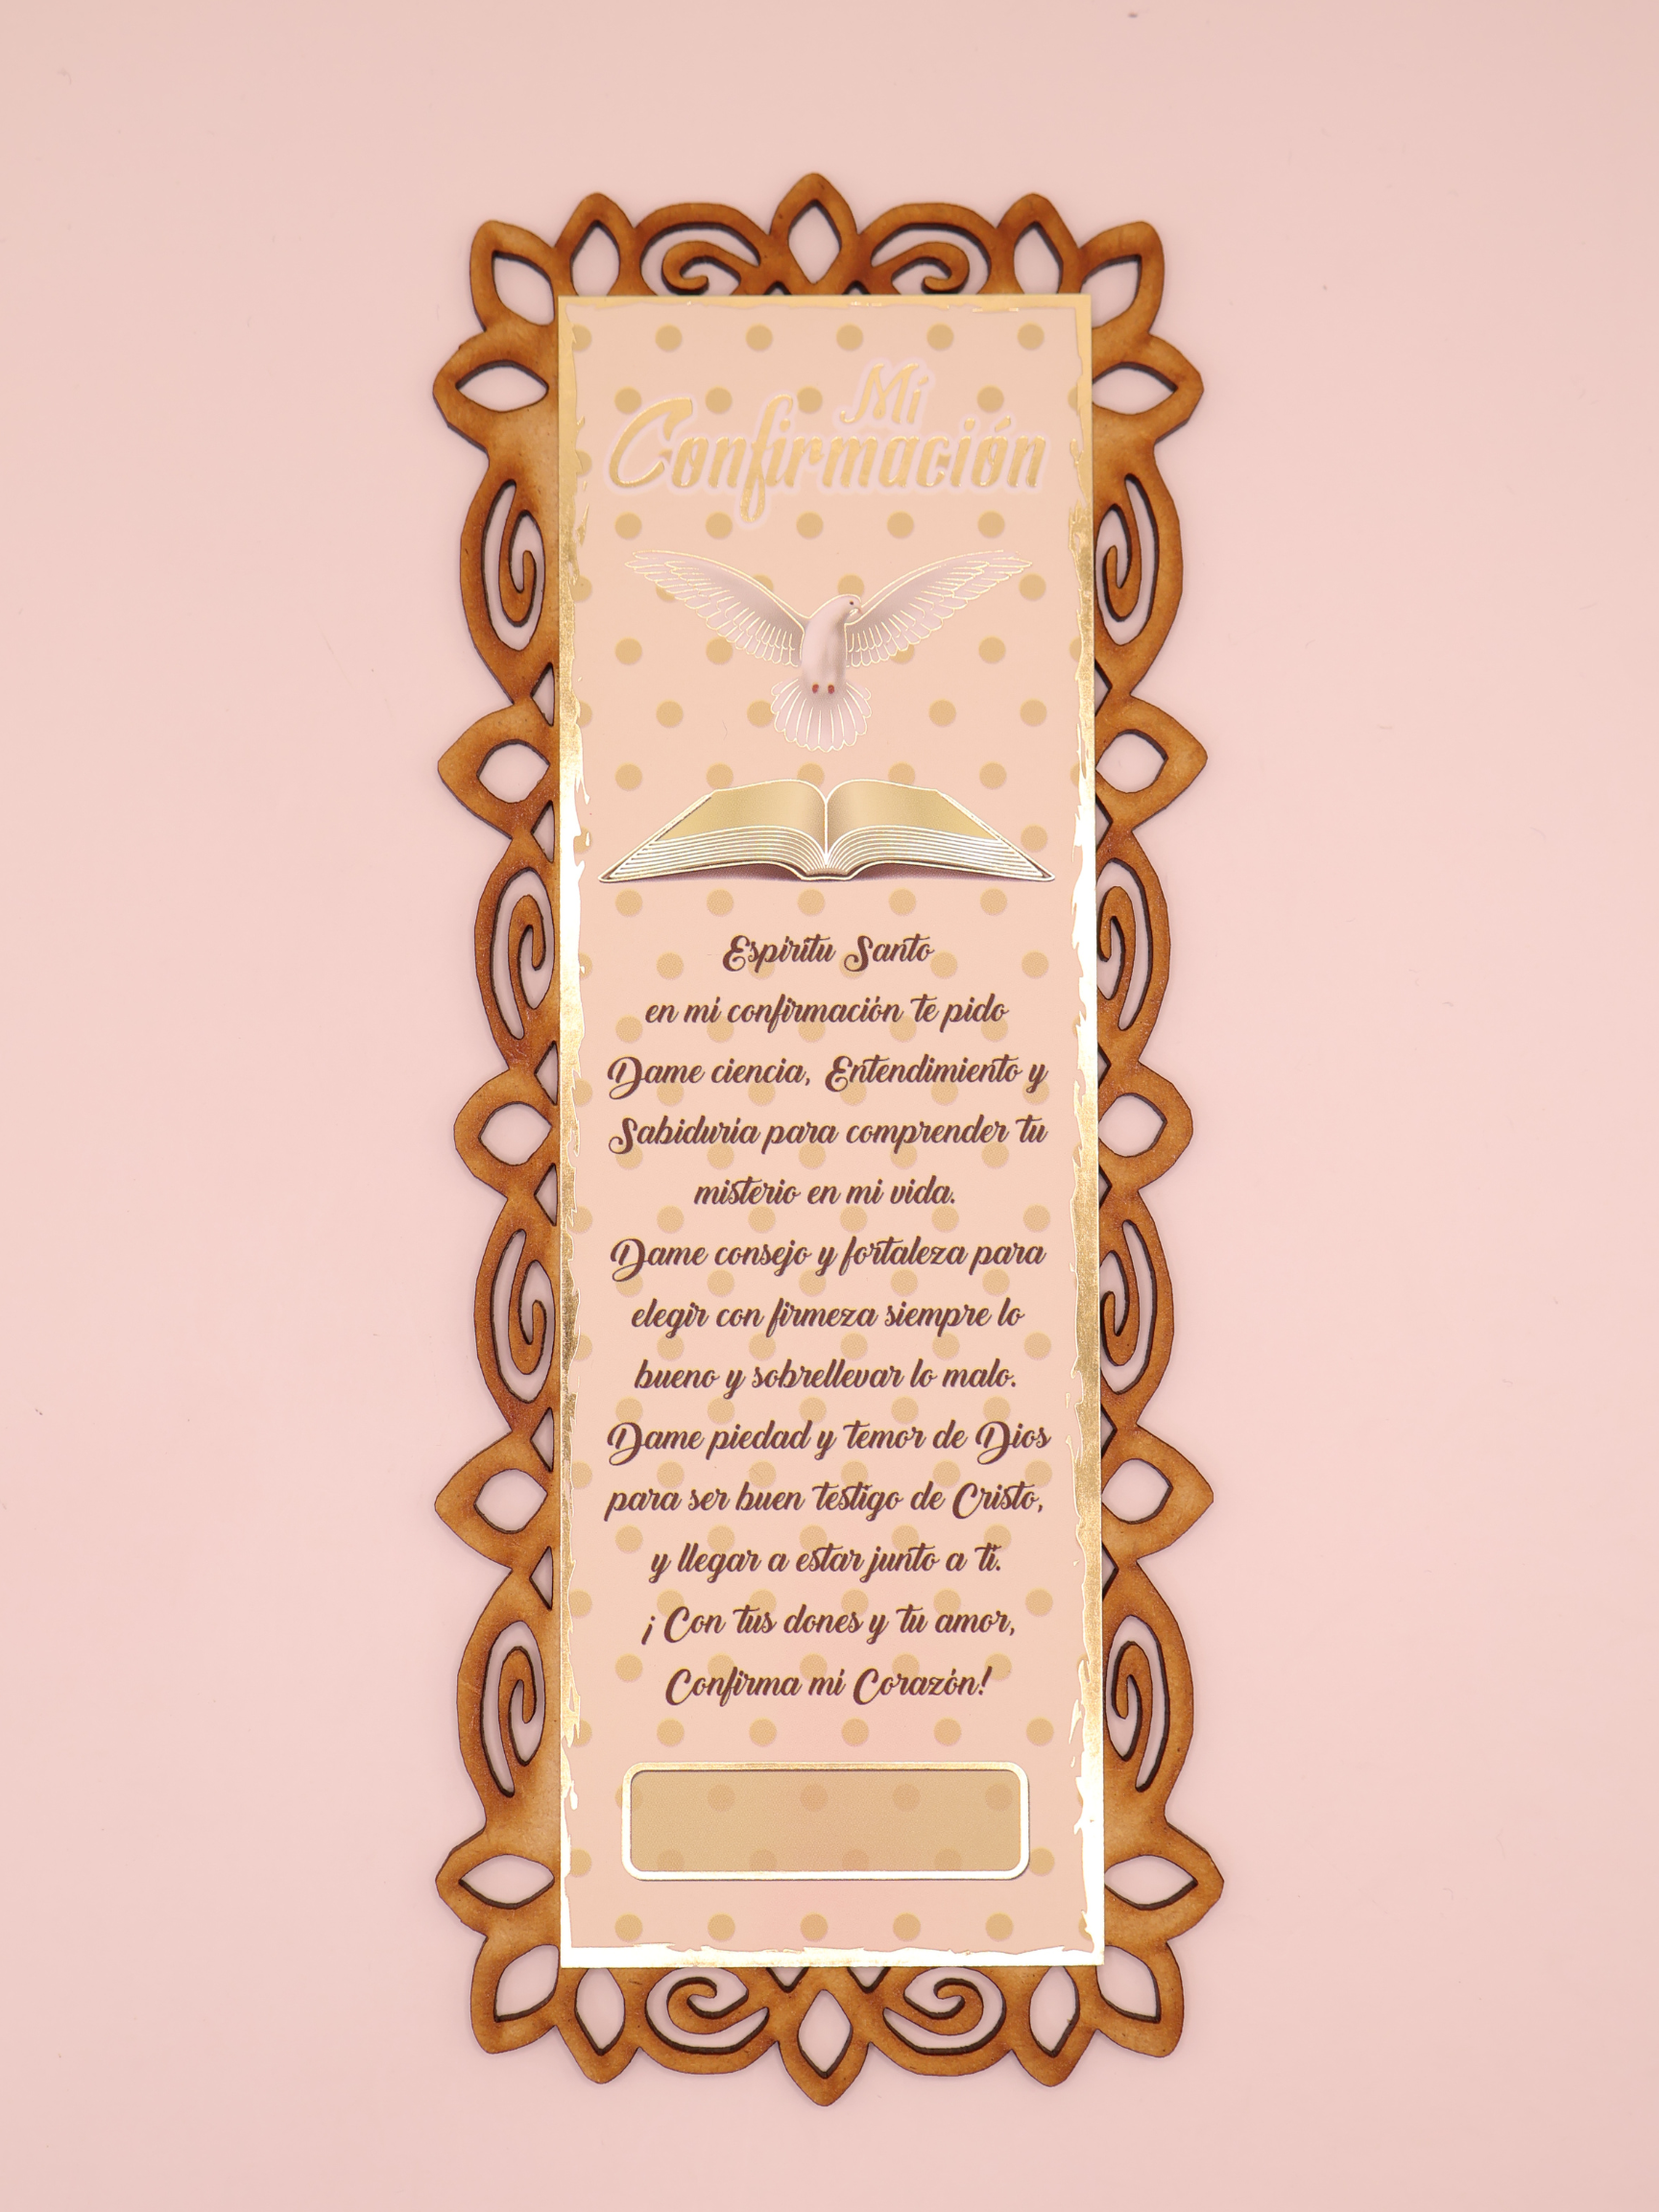 Mi
Confirmación
Espíritu Santo
en mi confirmación te pido
Dame ciencia, Entendimiento y
Sabiduría para comprender tu
misterio en mi vida.
Dame consejo y fortaleza para
elegir con firmeza siempre lo
bueno y sobrellevar lo malo.
Dame piedad y temor de Dios
para ser buen testigo de Cristo,
y llegar a estar junto a ti.
¡ Con tus dones y tu amor,
Confirma mi Corazón!